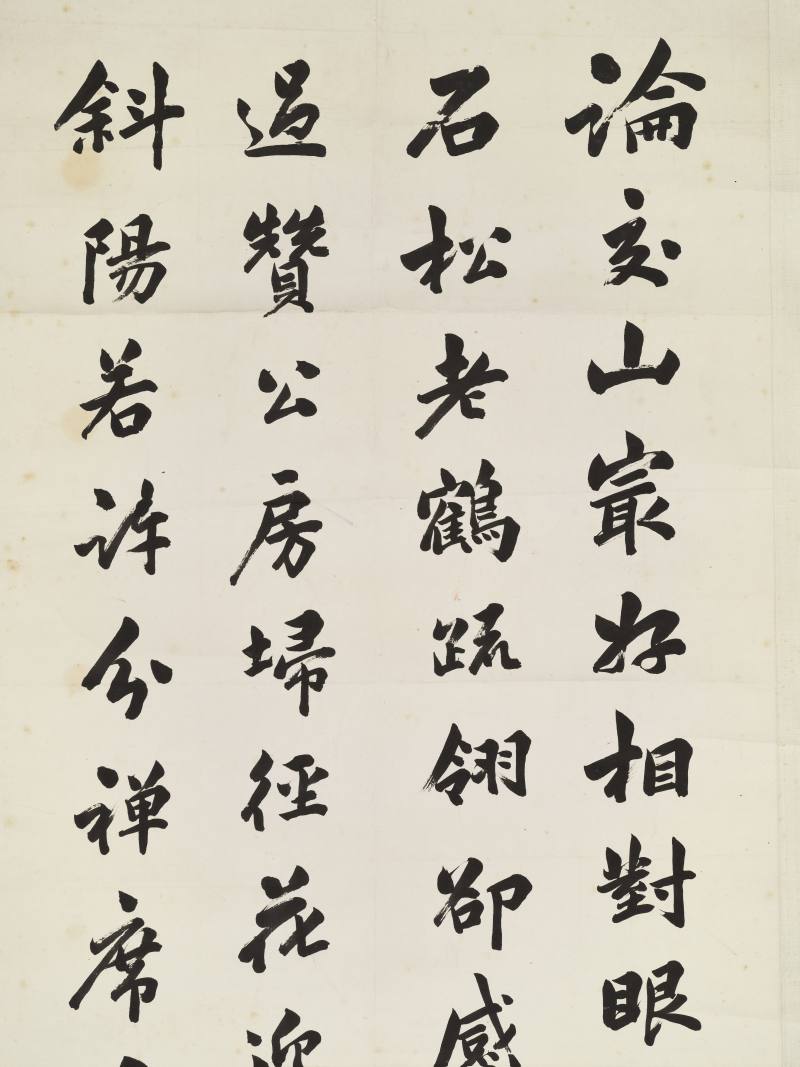 論交山最好相對眼
石松老鶴疏翎卻感
過贊公房埽徑花迎
斜陽若許分禪席